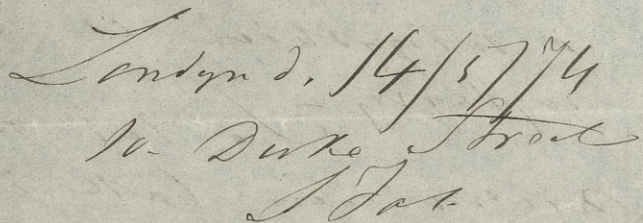 Londyn d. 14/5/74
10 - Duke Street
S Jas.